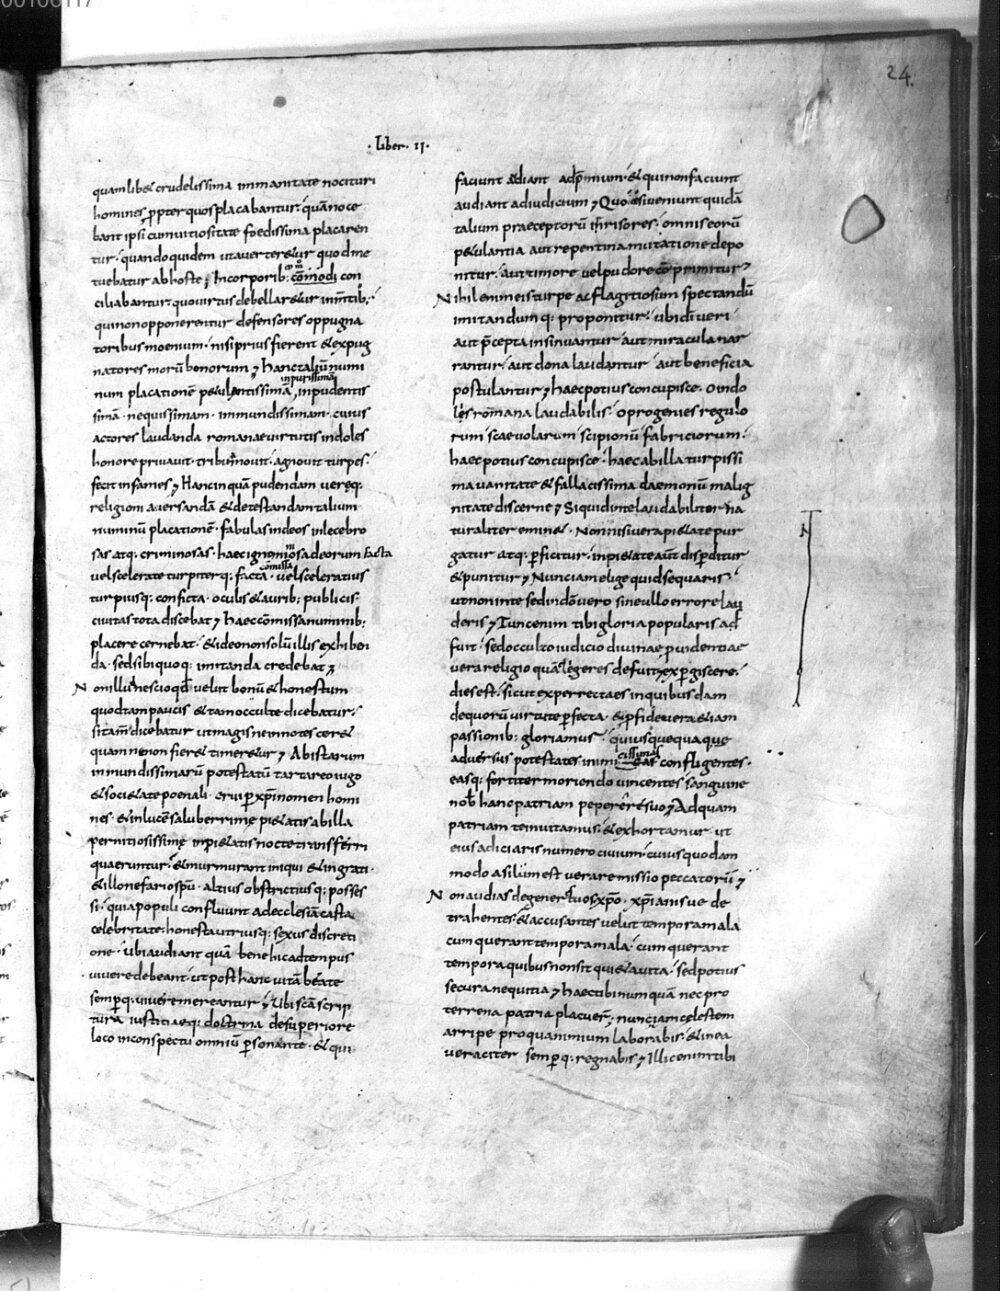 24.
· Liber · II ·
quamlib& crudelissima immanitate nocituri
homines ppter quos placabantur quānoce
bant ipsi cum uitiositate foedissima placaren
tur · quandoquidem ut auerter&ur quod me
tuebatur ab hoste Incorporib: cōmodi con
ciliabantur quo uirtus debellar&ur inmtib;
qui non opponerentur defensores oppugna
toribus moenium · nisi prius fierent & expug
natores morū bonorum Hanc talium numi
num placationē p&ulantissimā inpurissimā inpudentis
simā · nequissimam · immundissimam · cuius
actores laudanda romanae uirtutis indoles
honore priuauit · tribu mouit · agnouit turpes
fecit infames Hanc inquā pudendam ueręq:
religioni auersandā & detestandam talium
numinū placationē · fabulas in deos inlecebro
sas atq: criminosas · haec ignominiosa deorum facta
uel scelerate turpiterq: facta comissa · uel sceleratius
turpiusq: conficta · oculis & aurib; publicis
ciuitas tota discebat haec cōmissa numinib;
placere cernebat · & ideo non solū illis exhiben
da · sed sibi quoq: imitanda credebat
Non illū nescio qd uelut bonū & honestum
quod tam paucis & tam occulte dicebatur
si tam dicebatur ut magis ne innotescer&
quam ne non fier& timer&ur Ab istarum
inmundissimarū potestatū tartareo iugo
& soci&ate poenali · erui p xpi nomen homi
nes · & in lucē saluberrimę pi&atis ab illa
perniciosissimę inpi&atis nocte transferri
quaeruntur · & murmurant iniqui & ingrati ·
& illo nefario spū · altius obstrictiusq: posses
si · quia populi confluunt ad ecclesiā casta
celebritate · honesta utriusq: sexus discreti
one · ubi audiant quā bene hic ad tempus
uiuere debeant · ut post hanc uitā beate
sempq: uiuere mereantur Ubi scā scrip
tura iustitiaeq: doctrina de superiore
loco in conspectu omniū personante · & qui
faciunt audiant ad pmium · & qui non faciunt
audiant ad iudicium Quo &si ueniunt quidā
talium praeceptorū inrisores · omnis eorū
p&ulantia aut repentina mutatione depo
nitur · aut timore uel pudore cō primitur
Nihil enim eis turpe ac flagitiosum spectandū
imitandumq: proponitur · ubi di ueri
aut p̄cepta insinuantur aut miracula nar
rantur · aut dona laudantur aut beneficia
postulantur haec potius concupisce · o indo
les romana laudabilis · o progenies regulo
rum scaeuolarum scipionū fabriciorum ·
haec potius concupisce · haec ab illa turpissi
ma uanitate & fallacissima daemonū malig
nitate discerne Si quid in te laudabiliter na
turaliter emin& · Non nisi uera pi&ate pur
gatur atq: pficitur · inpi&ate aut disperditur
& punitur Nunc iam elige quid sequaris
ut non in te sed in dō uero sine ullo errore lau
deris Tunc enim tibi gloria popularis ad
fuit · sed occulto iudicio diuinae puidentiae
uera religio quā legeres defuit expgiscere ·
dies est · sicut experrecta es in quibusdam
de quorū uirtute pfecta · & p fide uera &iam
passionib: gloriamur · qui usquequaque
aduersus potestates inimicissimas confligentes ·
easq: fortiter moriendo uincentes sanguine
nob hanc patriam peperere suo Ad quam
patriam te inuitamus · & exhortamur ut
eius adiciaris numero ciuium · cuius quodam
modo asilum est uera remissio peccatorū
Non audias degeneres tuos xpo · xpianisue de
trahentes · & accusantes uelut tempora mala
cum querant tempora mala · cum querant
tempora quibus non sit qui&a uita · sed potius
secura nequitia haec tibi numquā nec pro
terrena patria placuer · nunc iam celestem
arripe pro qua minimum laborabis · & in ea
ueraciter sempq: regnabis Illic enim tibi